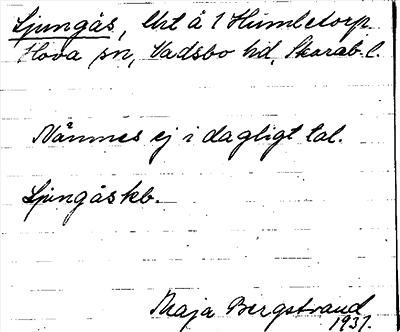 Ljungås, lht å 1 Humletorp.
Hova sn, Vadsbo hd, Skarab. l.
Nämnes ej i dagligt tal.
Ljungåskb.
Maja Bergstrand
1937.